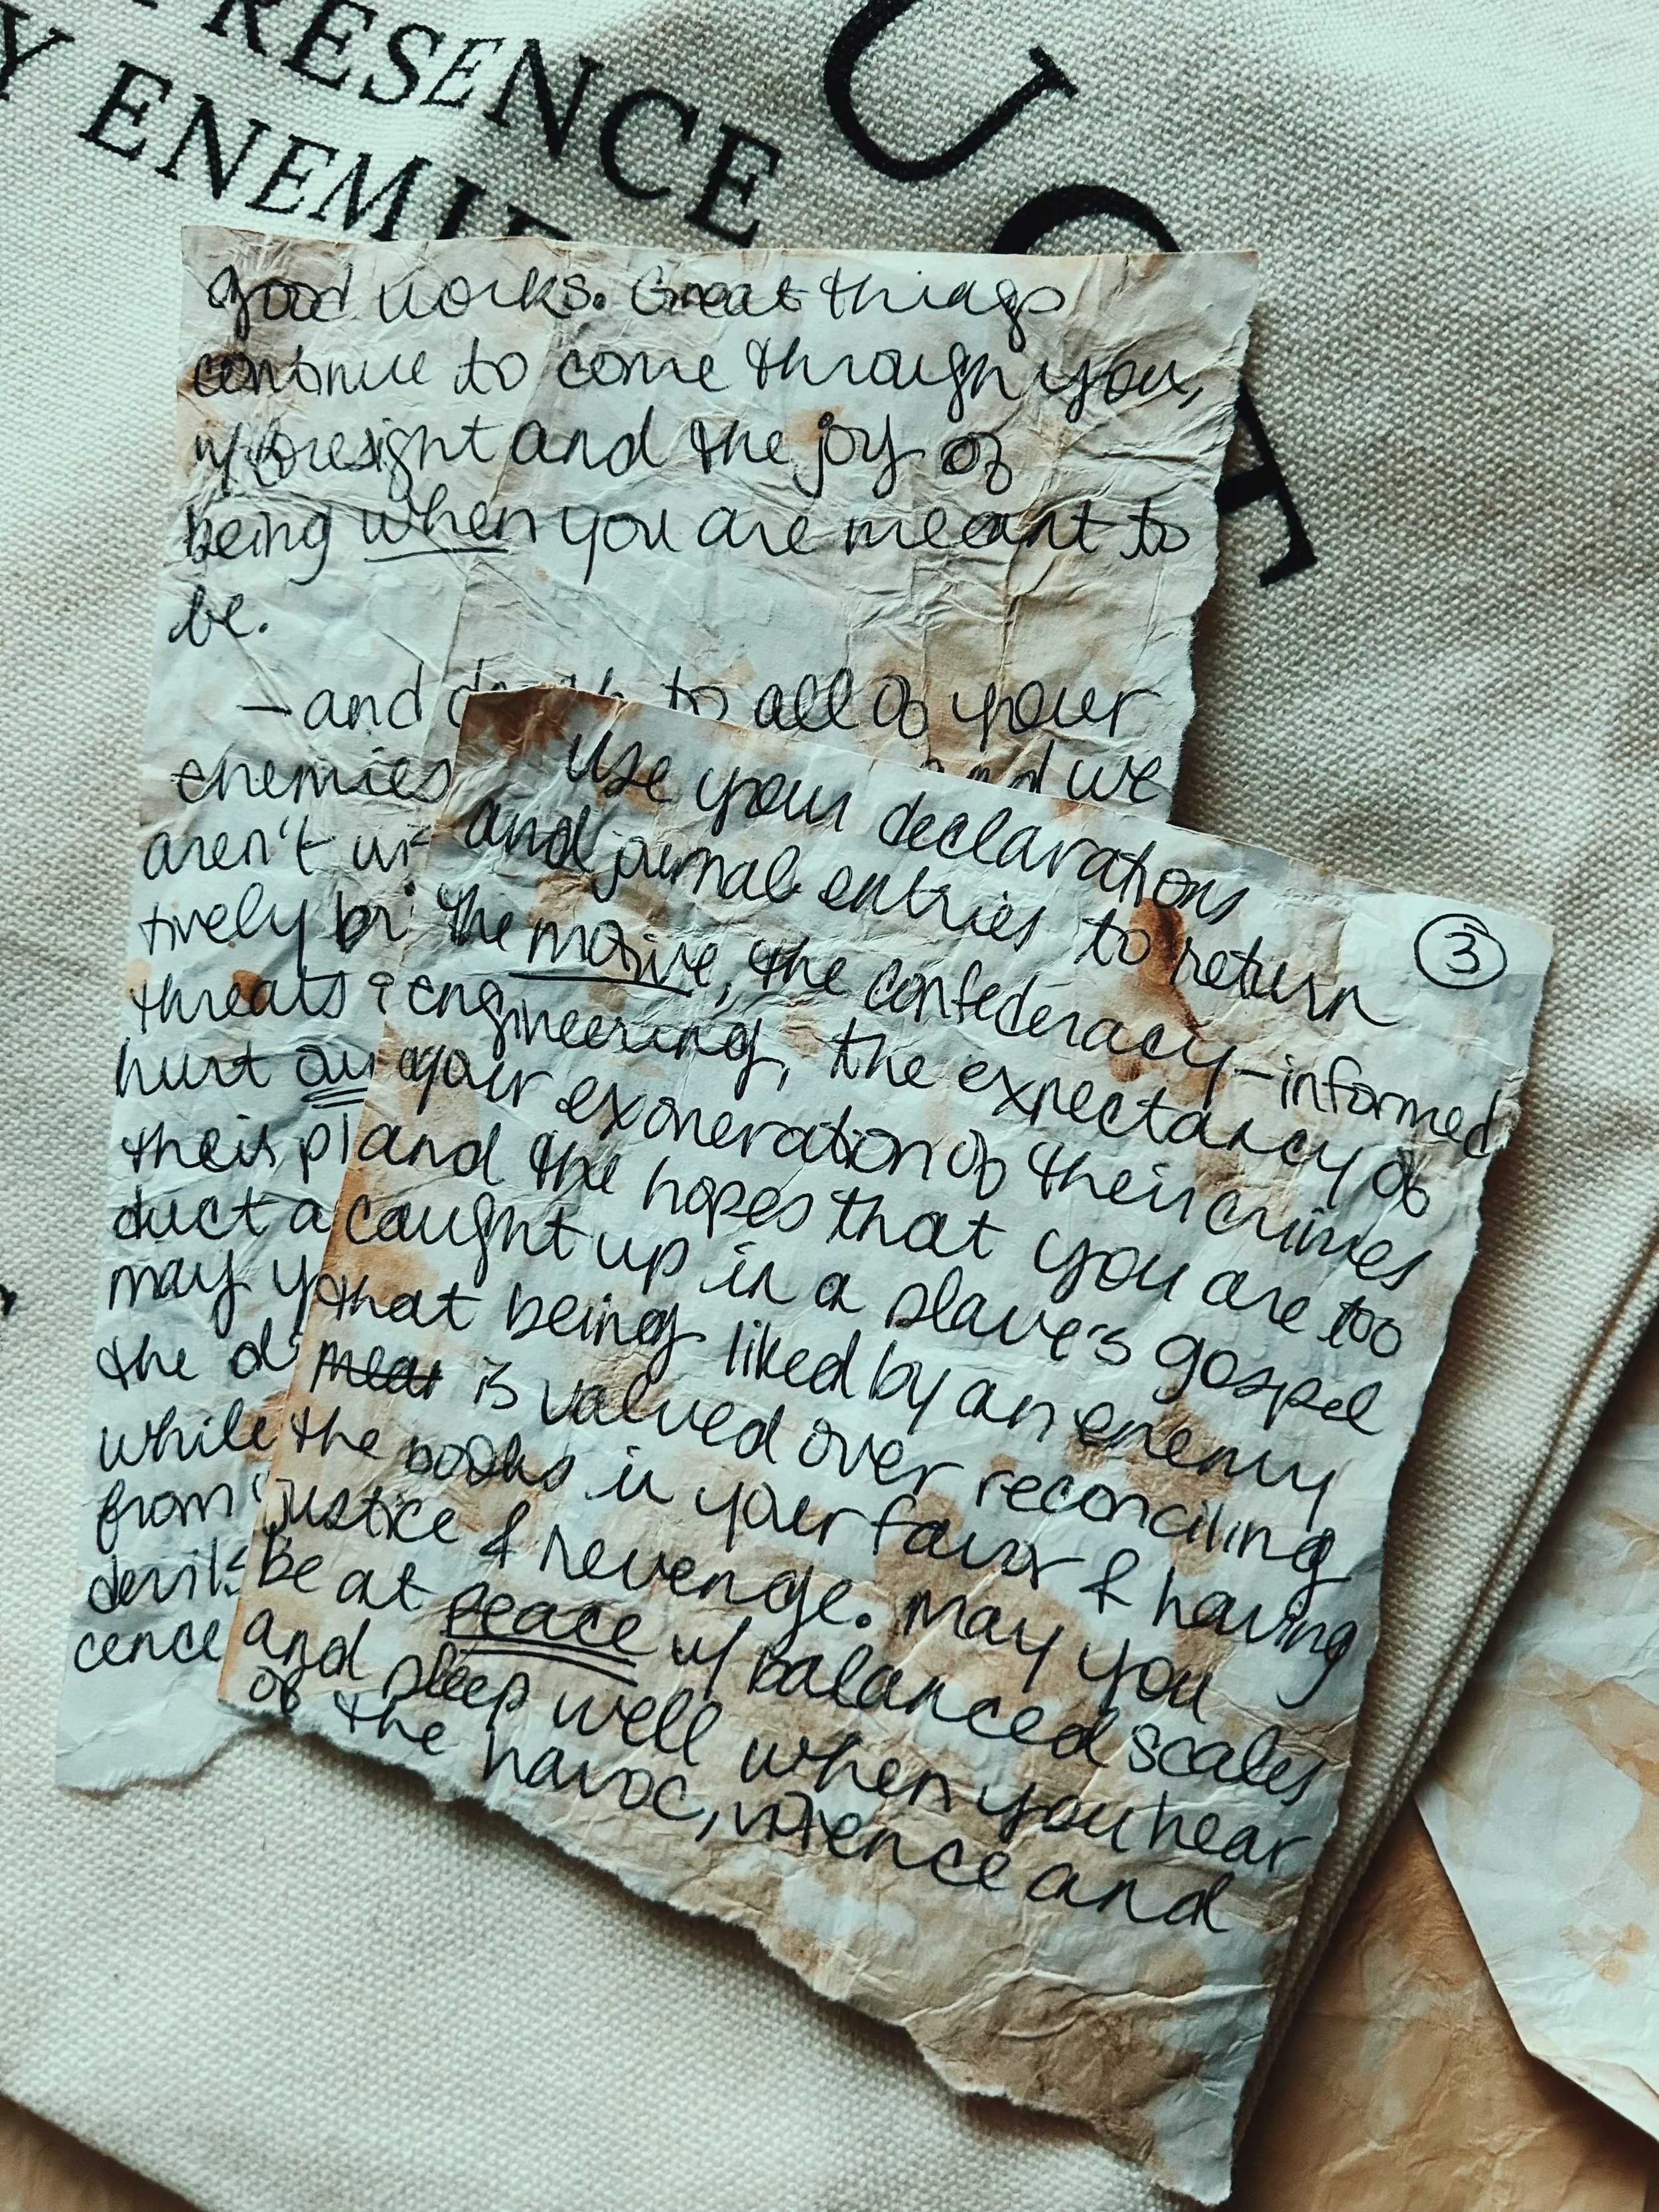 RESENCE
Y ENEMIE
good works. Great things
continue to come through you,
w/ foresight and the joy of
being when you are meant to
be.
— and to all of your
enemies and we
aren't
tively
threats &
hurt
their
duct a
may
the
while
from
devils
cence
③
use your declarations
and journal entries to return
the motive, the confederacy-informed
engineering, the expectancy of
your exoneration of their crimes
and the hopes that you are too
caught up in a slave's gospel
that being liked by an enemy
is valued over reconciling
the books in your favor & having
justice & revenge. May you
Be at peace w/ balanced scales
and sleep well when you hear
of the havoc, violence and